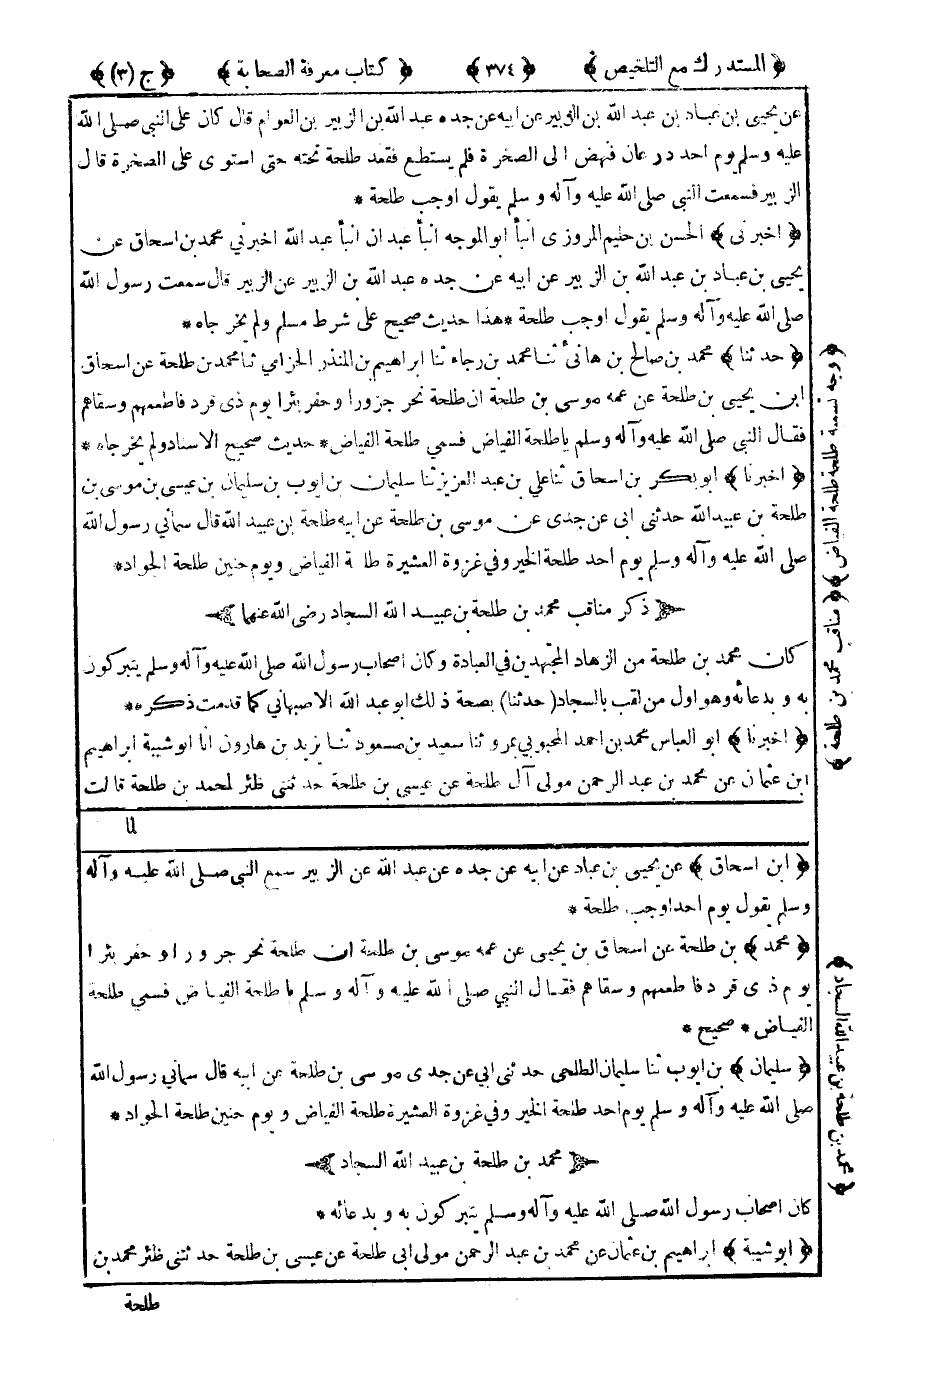 ﴿ المستدرك مع التلخيص ﴾ ﴿ ٣٧٤ ﴾ ﴿ كتاب معرفة الصحابة ﴾ ﴿ ج (٣) ﴾
عن يحيى بن عباد بن عبد الله بن الزبير عن ابيه عن جده عبد الله بن الزبير بن العوام قال كان على النبي صلى الله
عليه وسلم يوم احد درعان فنهض الى الصخرة فلم يستطع فقعد طلحة تحته حتى استوى على الصخرة قال
الزبير فسمعت النبي صلى الله عليه وآله وسلم يقول اوجب طلحة *
﴿ اخبرنى ﴾ الحسن بن حليم المروزى انبأ ابو الموجه انبأ عبدان انبأ عبد الله اخبرني محمد بن اسحاق عن
يحيى بن عباد بن عبد الله بن الزبير عن ابيه عن جده عبد الله بن الزبير عن الزبير قال سمعت رسول الله
صلى الله عليه وآله وسلم يقول اوجب طلحة * هذا حديث صحيح على شرط مسلم ولم يخرجاه *
﴿ حدثنا ﴾ محمد بن صالح بن هانئ ثنا محمد بن رجاء ثنا ابراهيم بن المنذر الحزامي ثنا محمد بن طلحة عن اسحاق
ابن يحيى بن طلحة عن عمه موسى بن طلحة ان طلحة نحر جزورا وحفر بئرا يوم ذى قرد فاطعمهم وسقاهم
فقال النبي صلى الله عليه وآله وسلم يا طلحة الفياض فسمي طلحة الفياض * حديث صحيح الاسناد ولم يخرجاه *
﴿ اخبرنا ﴾ ابو بكر بن اسحاق ثنا علي بن عبد العزيز ثنا سليمان بن ايوب بن سليمان بن عيسى بن موسى بن
طلحة بن عبيد الله حدثنى ابى عن جدى عن موسى بن طلحة عن ابيه طلحة بن عبيد الله قال سماني رسول الله
صلى الله عليه وآله وسلم يوم احد طلحة الخير وفي غزوة العشيرة طلحة الفياض ويوم حنين طلحة الجواد *
ذكر مناقب محمد بن طلحة بن عبيد الله السجاد رضى الله عنهما
كان محمد بن طلحة من الزهاد المجتهدين في العبادة وكان اصحاب رسول الله صلى الله عليه وآله وسلم يتبركون
به وبدعائه وهو اول من لقب بالسجاد (حدثنا) بصحة ذلك ابو عبد الله الاصبهاني كما قدمت ذكره *
﴿ اخبرنا ﴾ ابو العباس محمد بن احمد المحبوبي بمرو ثنا سعيد بن مسعود ثنا يزيد بن هارون انا ابو شيبة ابراهيم
ابن عثمان عن محمد بن عبد الرحمن مولى آل طلحة عن عيسى بن طلحة حدثتنى ظئر لمحمد بن طلحة قالت
لما
﴿ ابن اسحاق ﴾ عن يحيى بن عباد عن ابيه عن جده عن عبد الله عن الزبير سمع النبي صلى الله عليه وآله
وسلم يقول يوم احد اوجب طلحة *
﴿ محمد ﴾ بن طلحة عن اسحاق بن يحيى عن عمه موسى بن طلحة ان طلحة نحر جزورا وحفر بئرا
يوم ذى قرد فاطعمهم وسقاهم فقال النبي صلى الله عليه وآله وسلم يا طلحة الفياض فسمي طلحة
الفياض * صحيح *
﴿ سليمان ﴾ بن ايوب ثنا سليمان الطلحى حدثنى ابي عن جدى موسى بن طلحة عن ابيه قال سماني رسول الله
صلى الله عليه وآله وسلم يوم احد طلحة الخير وفي غزوة العشيرة طلحة الفياض ويوم حنين طلحة الجواد *
محمد بن طلحة بن عبيد الله السجاد
كان اصحاب رسول الله صلى الله عليه وآله وسلم يتبركون به وبدعائه *
﴿ ابو شيبة ﴾ ابراهيم بن عثمان عن محمد بن عبد الرحمن مولى ابى طلحة عن عيسى بن طلحة حدثتنى ظئر محمد بن
طلحة
﴿ وجه تسمية طلحة طلحة الفياض ﴾
﴿ مناقب محمد بن طلحة ﴾
﴿ محمد بن طلحة بن عبيد الله السجاد ﴾